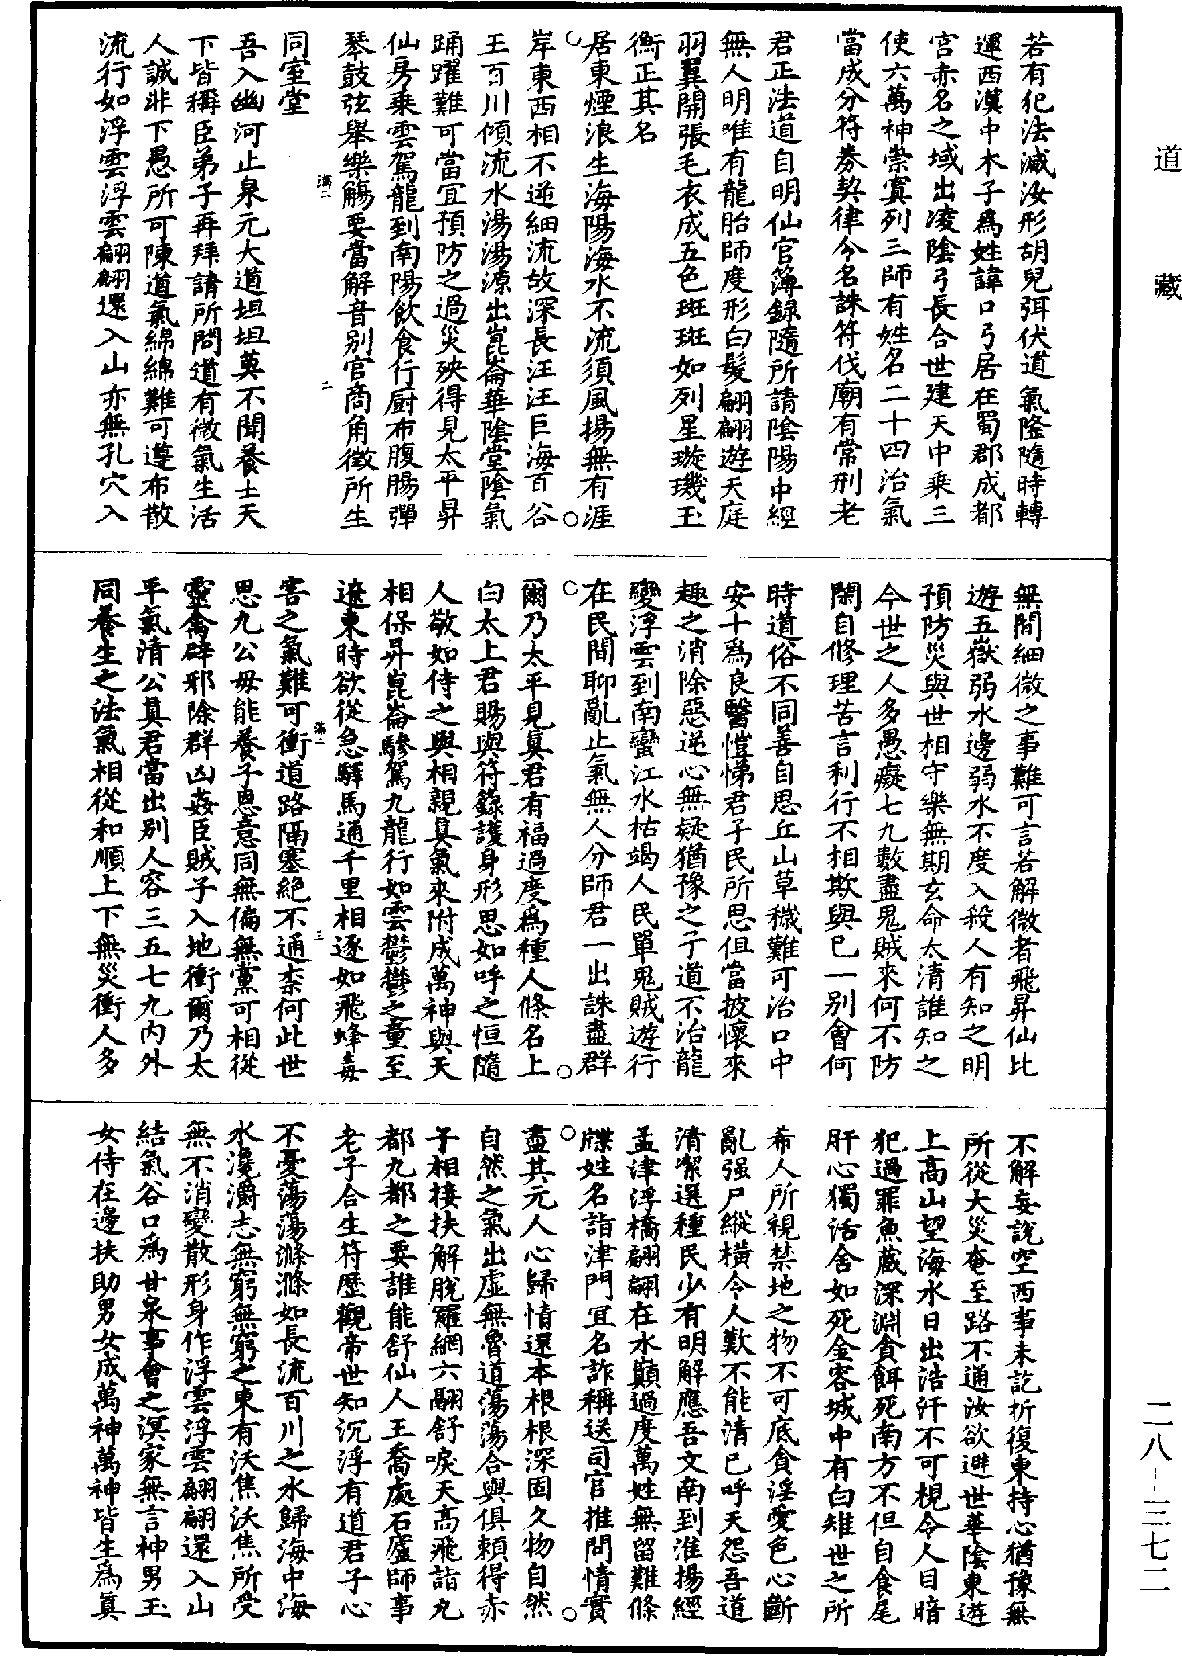 道藏
若有犯法滅汝形胡兒弭伏道氣隆隨時轉
運西漢中木子爲姓諱口弓居在蜀郡成都
宮赤名之域出凌陰弓長合世建天中乘三
使六萬神崇寘列三師有姓名二十四治氣
當成分符券契律令名誅符伐廟有常刑老
君正法道自明仙官簿錄隨所請陰陽中經
無人明唯有龍胎師度形白髮翩翩遊天庭
羽翼開張毛衣成五色斑斑如列星璇璣玉
衡正其名
居東煙浪生海陽海水不流須風揚無有涯
岸東西相不逆細流故深長汪汪巨海百谷
王百川傾流水湯湯源出崑崙華陰堂陰氣
踊躍難可當宜預防之過災殃得見太平昇
仙房乘雲駕龍到南陽飲食行厨布腹腸彈
琴鼓弦舉樂觴要當解音別官商角徵所生
滿二
二
同室堂
吾入幽河止泉元大道坦坦莫不聞養士天
下皆稱臣弟子再拜請所問道有微氣生活
人誠非下愚所可陳道氣綿綿難可遵布散
流行如浮雲浮雲翩翩還入山亦無孔穴入
無間細微之事難可言若解微者飛昇仙比
遊五嶽弱水邊弱水不度入殺人有知之明
預防災與世相守樂無期玄命太清誰知之
今世之人多愚癡七九數盡鬼賊來何不防
閑自修理苦言利行不相欺與已一別會何
時道俗不同善自思丘山草穢難可治口中
安十爲良醫愷悌君子民所思但當披懷來
趣之消除惡逆心無疑猶豫之子道不治龍
變浮雲到南蠻江水枯竭人民單鬼賊遊行
在民間聊亂止氣無人分師君一出誅盡群
爾乃太平見真君有福過度爲種人條名上
白太上君賜與符錄護身形思如呼之恒隨
人敬如侍之與相親真氣來附成萬神與天
相保昇崑崙驂駕九龍行如雲鬱鬱之童至
遼東時欲從急驛馬通千里相逐如飛蜂毒
滿二
三
害之氣難可衝道路隔塞絕不通柰何此世
思九公毋能養子恩意同無偏無黨可相從
靈禽辟邪除群凶姦臣賊子入地衝爾乃太
平氣清公真君當出別人容三五七九內外
同養生之法氣相從和順上下無災衝人多
不解妄說空西事未訖折復東持心猶豫無
所從大災奄至路不通汝欲避世華陰東遊
上高山望海水日出浩汗不可梘令人目暗
犯過罪魚藏深淵貪餌死南方不但自食尾
肝心獨活舍如死金容城中有白雉世之所
希人所視禁地之物不可底貪淫愛色心斷
亂强尸縱橫令人歎不能清已呼天怨吾道
清潔選種民少有明解應吾文南到淮揚經
孟津浮橋翩翩在水巔過度萬姓無留難條
牒姓名詣津門宜名詐稱送司官推問情實
盡其元人心歸情還本根根深固久物自然
自然之氣出虛無魯道蕩蕩合與俱賴得赤
子相接扶解脫羅網六翮舒唳天高飛詣九
都九都之要誰能舒仙人王喬處石廬師事
老子合生符歷觀帝世知沉浮有道君子心
不憂蕩蕩滌滌如長流百川之水歸海中海
水瀺灂志無窮無窮之東有沃焦沃焦所受
無不消變散形身作浮雲浮雲翩翩還入山
結氣谷口爲甘泉事會之溟家無言神男玉
女侍在邊扶助男女成萬神萬神皆生爲真
二八－三七二